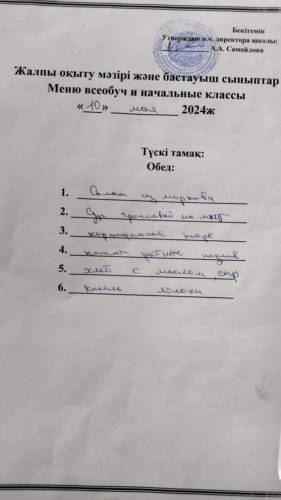 Бекітемін
Утверждаю и.о. директора школы:
А.А. Самойлова
Жалпы оқыту мәзірі және бастауыш сыныптар
Меню всеобуч и начальные классы
«10» мая 2024ж
Түскі тамақ:
Обед:
1. Салат из моркови
2. Суп гороховый на
3. картофельное пюре
4.
5. хлеб с маслом, сыр
6. кисель яблоки